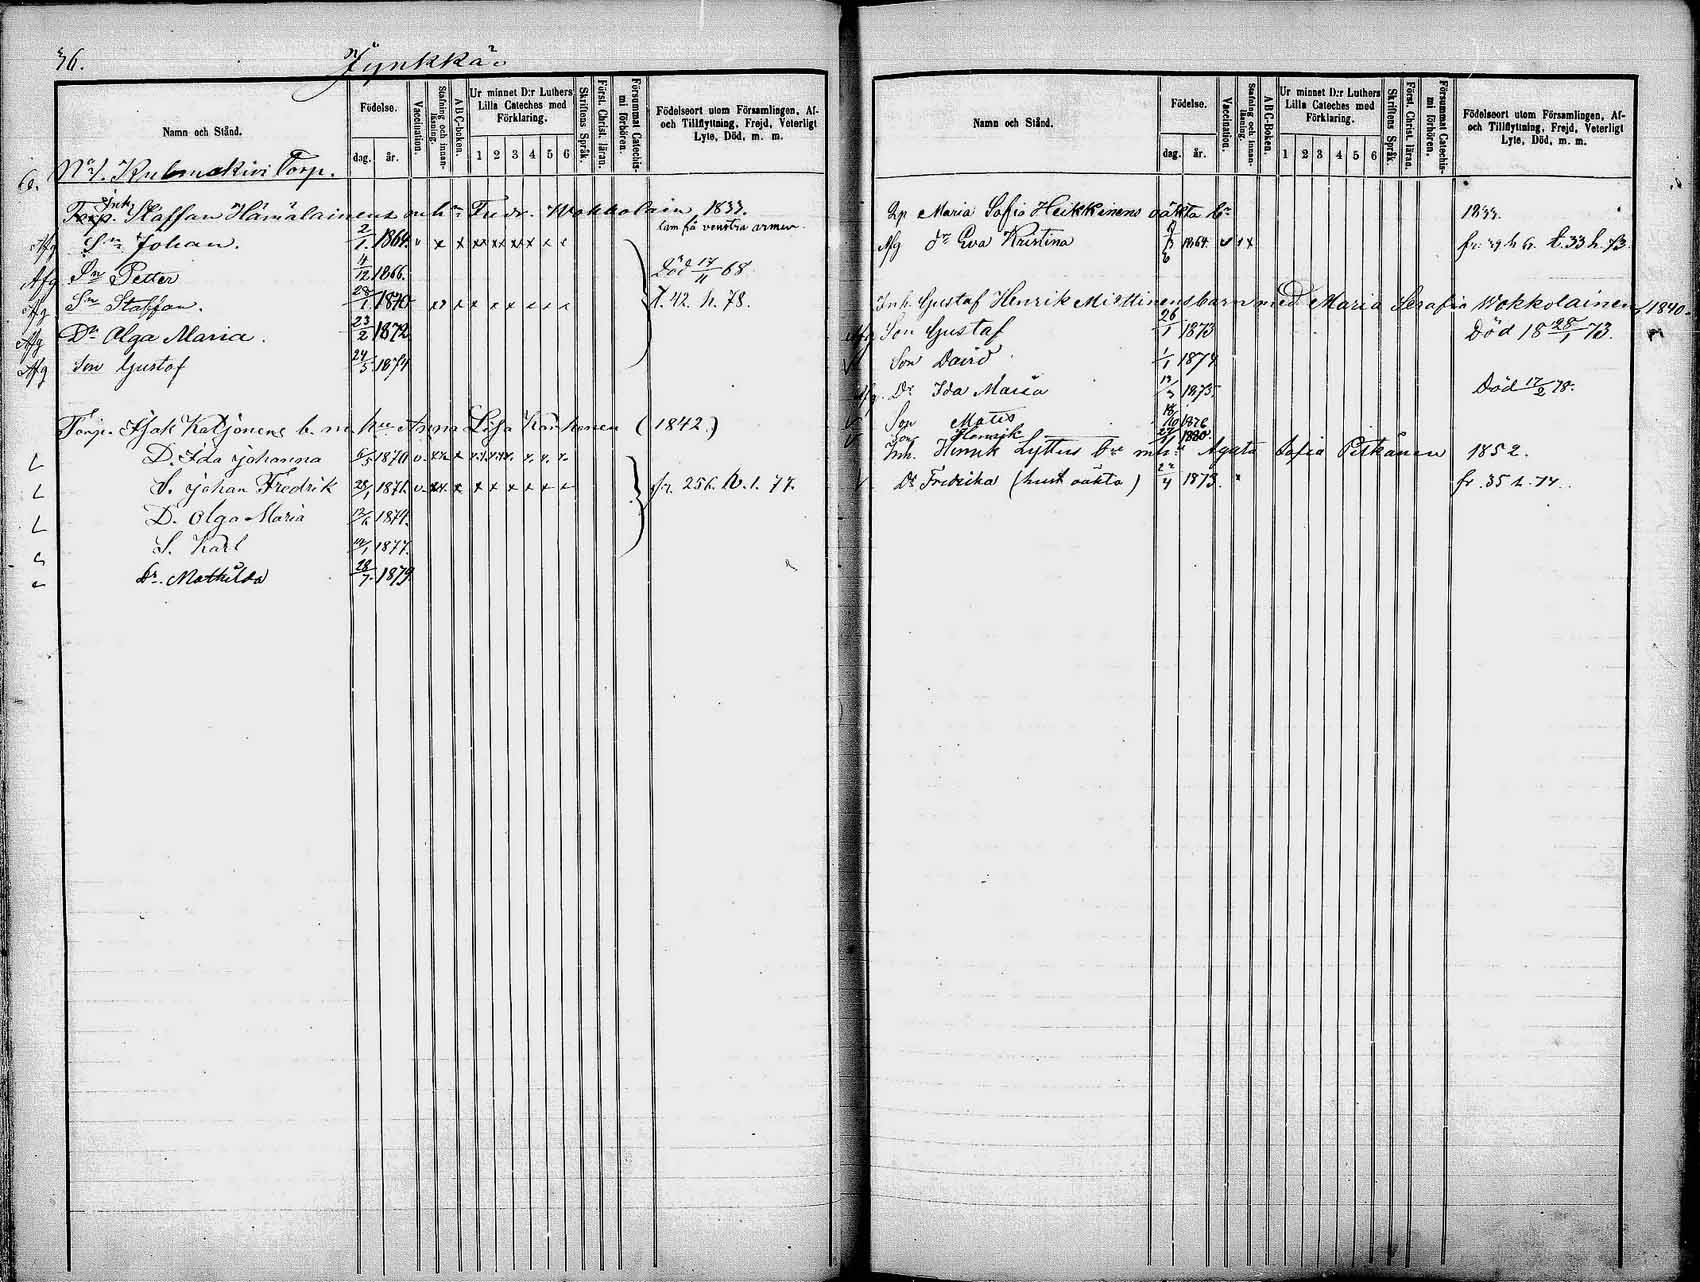 36.
Jynkkä.
Namn och Stånd.
Födelse.
dag.
år.
Vaccination.
Stafning och innan-läsning.
ABC-boken.
Ur minnet D:r Luthers
Lilla Cateches med
Förklaring.
1 2 3 4 5 6
Skriftens Språk.
Först. Christ. läran.
Försummat Catechis-
mi förhören.
Födelseort utom Församlingen, Af-
och Tillflyttning, Frejd, Veterligt
Lyte, Död, m. m.
No 1. Torp.
Torp. Inh. Staffan Hämäläinens Wokkolain 1833.
Afg Sn Johan. 2/1 1864. v x x xx xx xx x x x lam få venstra armen.
Afg Sn Petter 4/12 1866. Död 17/11 68
Afg Sn Staffan. 28/1 1870 t. 42. h. 78.
Afg Dr Olga Maria. 23/2 1872
Afg Son Gustof 24/5 1874
Torp. Katjonens b. m. hu Anna Lisa Karhonen (1842.)
D. Ida Johanna 6/5 1870 v. x x x
S. Johan Fredrik 28/1 1871. v. xx x x x x x x x fr. 256. 1. 77.
D. Olga Maria 12/6 1874.
S. Karl 14/1 1877.
Dr. Mathilda 28/7 1879.
Namn och Stånd.
Födelse.
dag.
år.
Vaccination.
Stafning och innan-läsning.
ABC-Boken.
Ur minnet D:r Luthers
Lilla Cateches med
Förklaring.
1 2 3 4 5 6
Skriftens Språk.
Först. Christ. läran.
Försummat Catechis-
mi förhören.
Födelseort utom Församlingen, Af-
och Tillflyttning, Frejd, Veterligt
Lyte, Död, m. m.
Maria Sofia Heikkinens oäkta 1833.
Afg dr Eva Kristina 1864 v x x t. 33 h. 73
Inh. Gustaf Henrik Miettinens barn med Maria Serafia Wokkolainen 1840.
Afg. Son Gustaf 26/1 1873 Död 18 28/1 73.
Son David 1/1 1874
Afg. Dr Ida Maria 1875. Död 17/2 78.
Son Mats 18/10 1876
Son Henrik 27/1 1880.
Inh. Henrik Lyttus b. m. hu Agata Sofia Pitkänen 1852.
Dr Fredrika (hust oäkta) 22/4 1873. fr. 35 h. 74.